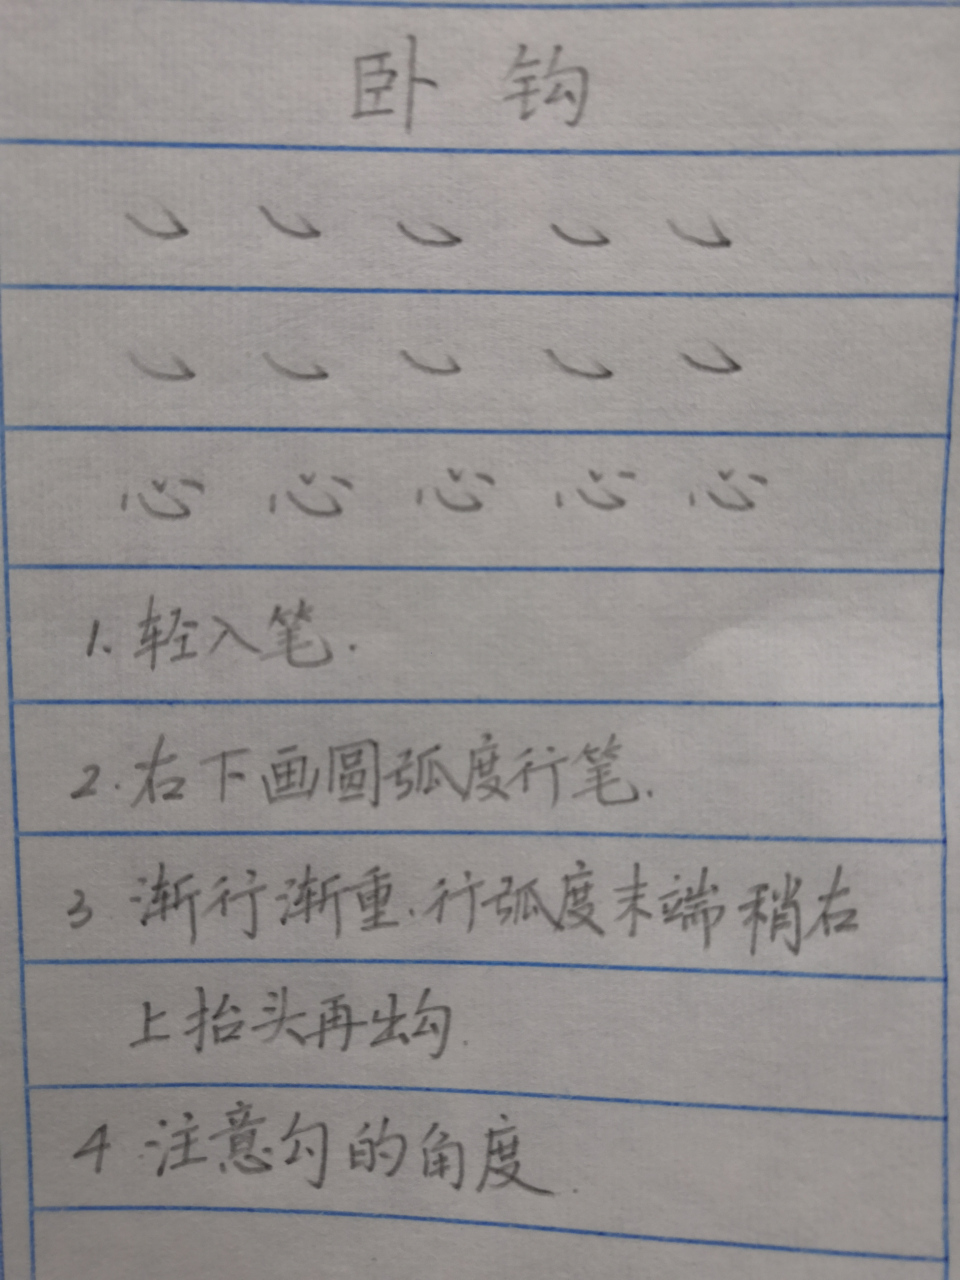 卧钩
㇃ ㇃ ㇃ ㇃ ㇃
㇃ ㇃ ㇃ ㇃ ㇃
心 心 心 心 心
1. 轻入笔.
2. 右下画圆弧度行笔.
3 渐行渐重.行弧度末端稍右
上抬头再出勾.
4 注意勾的角度.